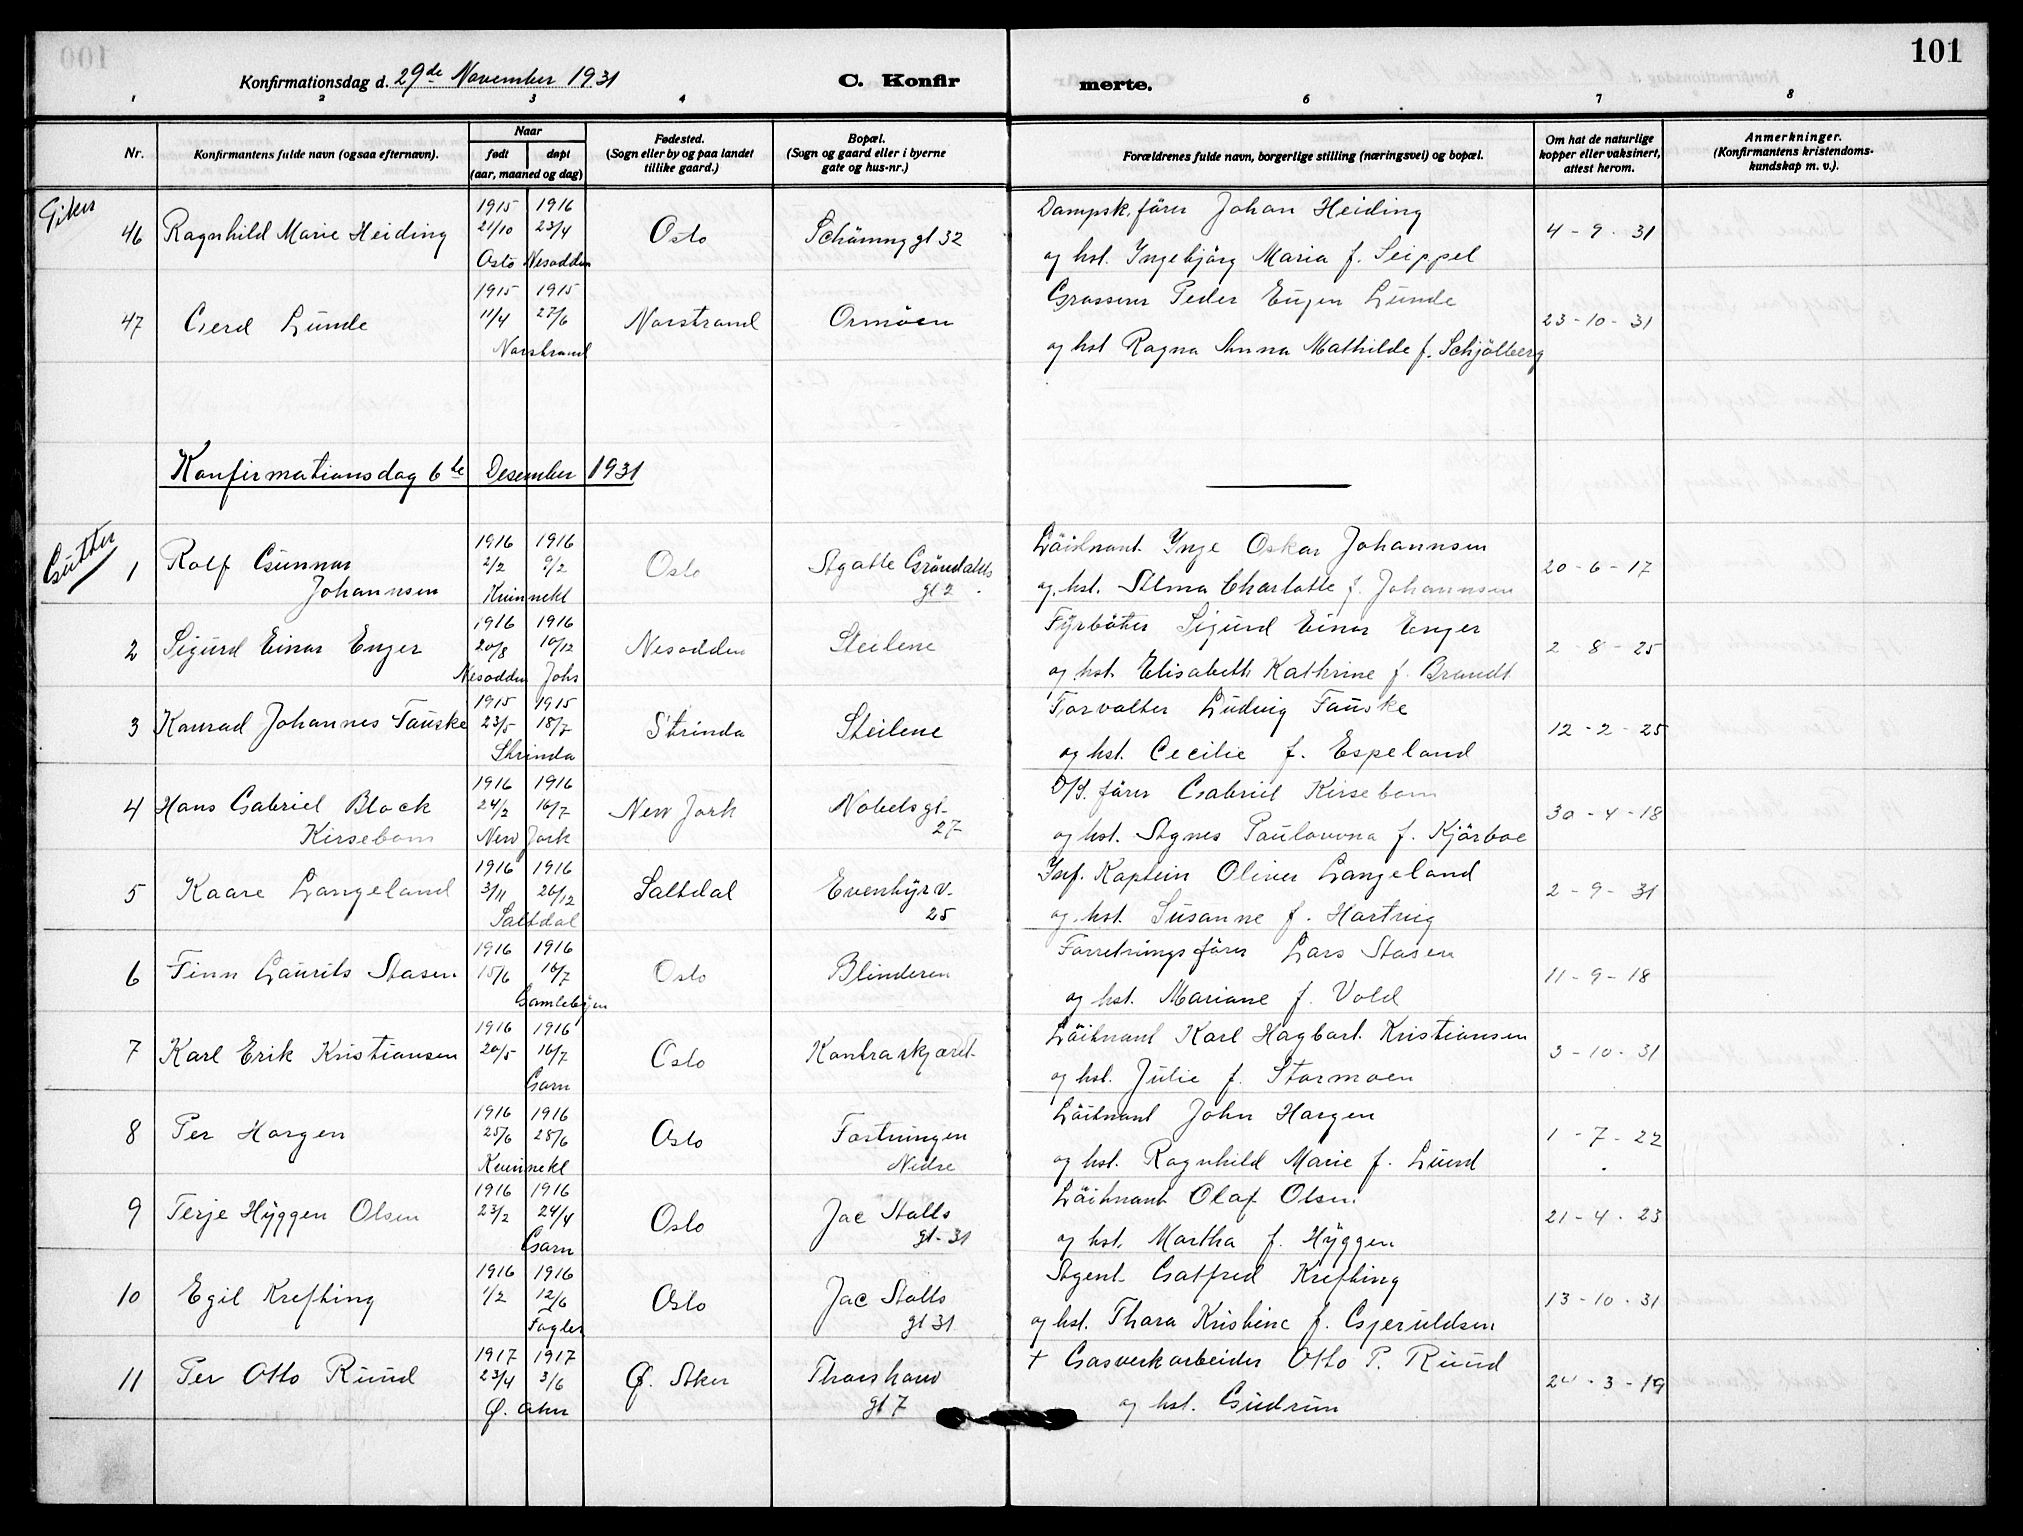 101
Konfirmationsdag d. 29de November 1931 C. Konfir merte.
1 2 3 4 6 7 8
Nr. Konfirmantens fulde navn (ogsaa efternavn). Naar født døpt (aar, maaned og dag) Fødested. (Sogn eller by og paa landet tillike gaard.) Bopæl. (Sogn og gaard eller i byerne gate og hus-nr.) Forældrenes fulde navn, borgerlige stilling (næringsvei) og bopæl. Om hat de naturlige kopper eller vaksinert, attest herom. Anmerkninger. (Konfirmantens kristendoms-kundskap m. v.).
Piker
1915 1916 Dampsk.fører Johan Heiding
46 Ragnhild Marie Heiding 21/10 23/4 Oslo Schønnings gt 32 4 - 9 - 31
Oslo Nesodden og hst. Ingebjørg Maria f. Seippel
1915 1915 Grosserer Peder Eugen Lunde
47 Gerd Lunde 11/4 27/6 Norstrand Ormøen 23 - 10 - 31
Norstrand og hst Ragna Anna Mathilde f. Schjølberg
Konfirmationsdag 6te Desember 1931
Gutter
1916 1916 Løitnant Inge Oskar Johannsen
1 Rolf Gunnar 2/2 9/2 Oslo Agatte Grøndahls 20 - 6 - 17
Johannsen Kvinnekl gt 2 og hst. Alma Charlotte f. Johannsen
1916 1916 Fyrbøter Sigurd Einar Enger
2 Sigurd Einar Enger 20/8 10/12 Nesodden Steilene 2 - 8 - 25
Nesodden Johs og hst. Elisabeth Kathrine f. Brandt
1915 1915 Forvalter Ludvig Fauske
3 Konrad Johannes Fauske 23/5 18/7 Strinda Steilene 12 - 2 - 25
Strinda og hst. Cecilie f. Espeland
1916 1916 D/S. fører Gabriel Kirsebom
4 Hans Gabriel Block 24/2 16/7 New Jork Nobels gt. 30 - 4 - 18
Kirsebom New Jork 27 og hst. Agnes Paulowna f. Kjørboe
1916 1916 Inf. Kaptein Oliver Langeland
5 Kaare Langeland 3/11 26/12 Saltdal Evenbyr v. 2 - 9 - 31
Saltdal 25 og hst. Susanne f. Hartvig
1916 1916 Forretningsfører Lars Aasen
6 Finn Laurits Aasen 15/6 16/7 Oslo Blinderen 11 - 9 - 18
Gamlebyen og hst. Mariane f. Vold
1916 1916 Løitnant Karl Hagbart Kristiansen
7 Karl Erik Kristiansen 20/5 16/7 Oslo Kontraskjæret 3 - 10 - 31
Garn og hst. Julie f. Stormoen
1916 1916 Løitnant John Horgen
8 Per Horgen 25/6 25/6 Oslo Festningen 1 - 7 - 22
Kvinnekl Nedre og hst. Ragnhild Marie f. Lund
1916 1916 Løitnant Olaf Olsen
9 Terje Hyggen Olsen 23/2 24/4 Oslo Jac Aalls 21 - 4 - 23
Garn gt. 31 og hst. Martha f. Hyggen
1916 1916 Agent Gotfred Krefting
10 Egil Krefting 1/2 12/6 Oslo Jac Aalls 13 - 10 - 31
Fagler gt 31 og hst. Thora Kristine f. Gjeruldsen
1917 1917 + Gasverkarbeider Otto P. Ruud
11 Per Otto Ruud 23/4 3/6 Ø. Aker Thorshaw 24 - 3 - 19
Ø. aker gt 7 og hst. Gudrun